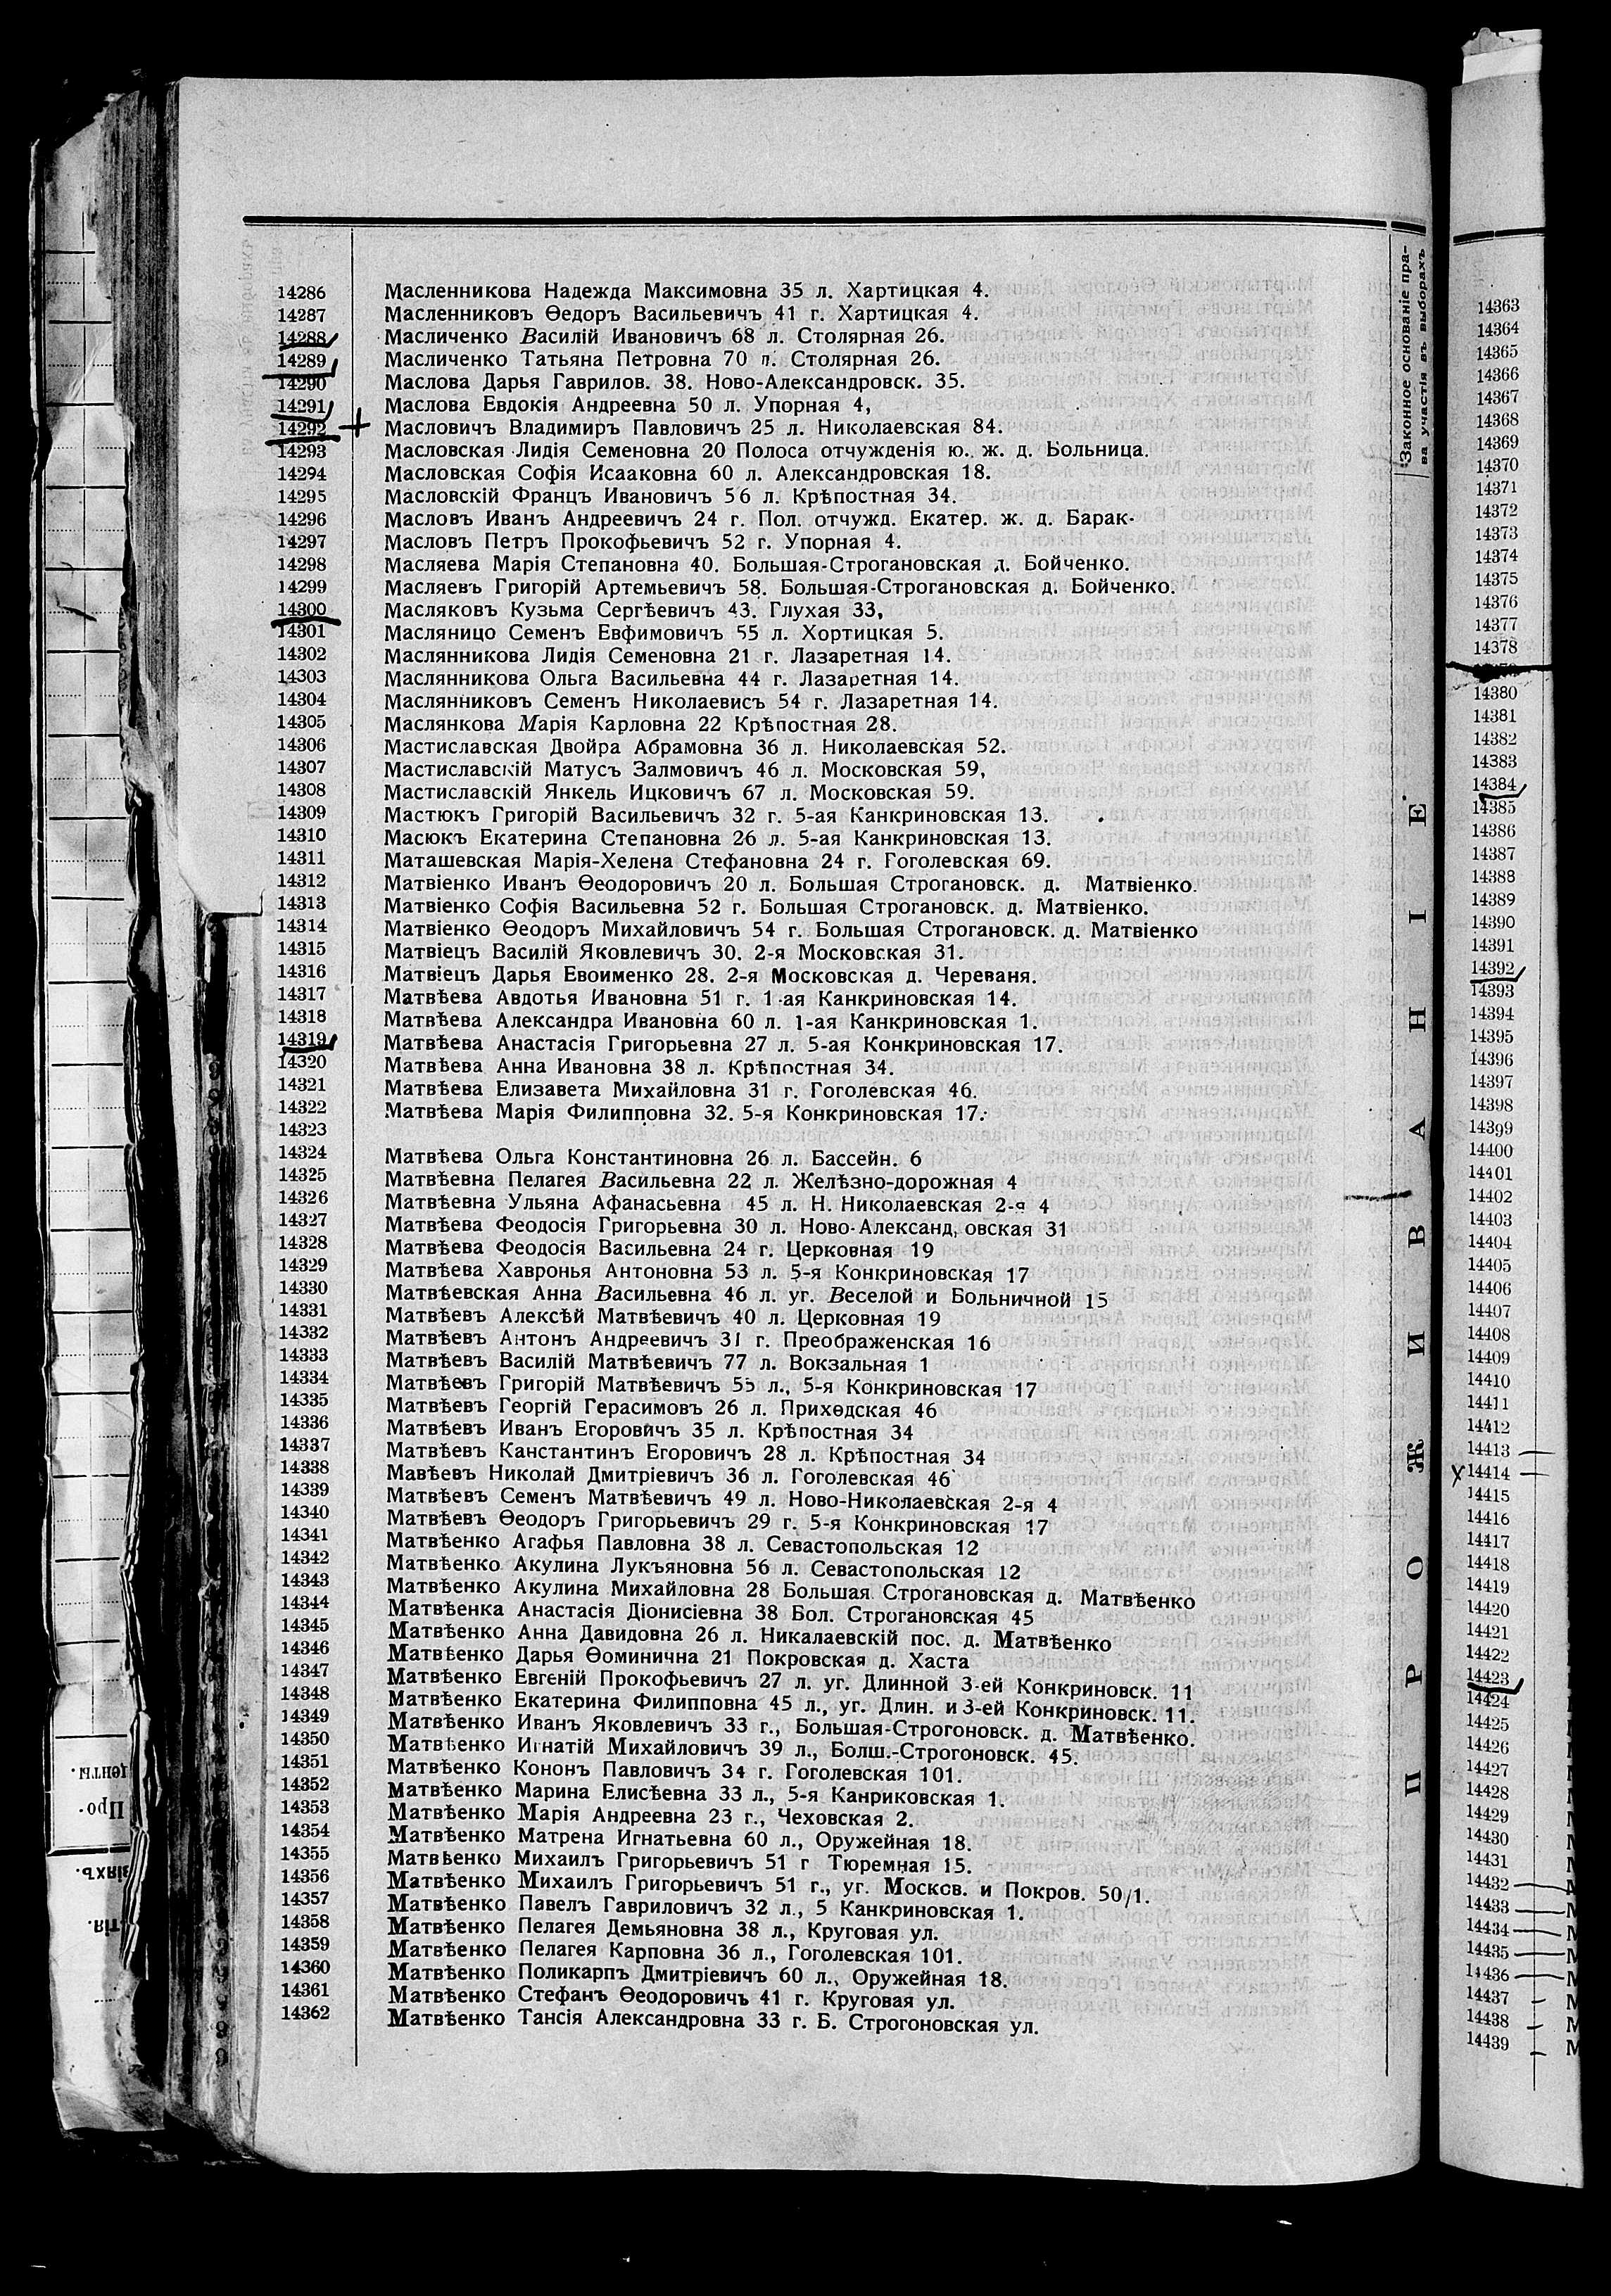 14286 Масленникова Надежда Максимовна 35 л. Хартицкая 4.
14287 Масленниковъ Ѳедоръ Васильевичъ 41 г. Хартицкая 4.
14288 Масличенко Василій Ивановичъ 68 л. Столярная 26.
14289 Масличенко Татьяна Петровна 70 л. Столярная 26.
14290 Маслова Дарья Гаврилов. 38. Ново-Александровск. 35.
14291 Маслова Евдокія Андреевна 50 л. Упорная 4,
14292 Масловичъ Владимиръ Павловичъ 25 л. Николаевская 84.
14293 Масловская Лидія Семеновна 20 Полоса отчужденія ю. ж. д. Больница.
14294 Масловская Софія Исааковна 60 л. Александровская 18.
14295 Масловскій Францъ Ивановичъ 56 л. Крѣпостная 34.
14296 Масловъ Иванъ Андреевичъ 24 г. Пол. отчужд. Екатер. ж. д. Барак-
14297 Масловъ Петръ Прокофьевичъ 52 г. Упорная 4.
14298 Масляева Марія Степановна 40. Большая-Строгановская д. Бойченко.
14299 Масляевъ Григорій Артемьевичъ 58. Большая-Строгановская д. Бойченко.
14300 Масляковъ Кузьма Сергѣевичъ 43. Глухая 33,
14301 Масляницо Семенъ Евфимовичъ 55 л. Хортицкая 5.
14302 Маслянникова Лидія Семеновна 21 г. Лазаретная 14.
14303 Маслянникова Ольга Васильевна 44 г. Лазаретная 14.
14304 Маслянниковъ Семенъ Николаевисъ 54 г. Лазаретная 14.
14305 Маслянкова Марія Карловна 22 Крѣпостная 28.
14306 Мастиславская Двойра Абрамовна 36 л. Николаевская 52.
14307 Мастиславскій Матусъ Залмовичъ 46 л. Московская 59,
14308 Мастиславскій Янкель Ицковичъ 67 л. Московская 59.
14309 Мастюкъ Григорій Васильевичъ 32 г. 5-ая Канкриновская 13.
14310 Масюкъ Екатерина Степановна 26 л. 5-ая Канкриновская 13.
14311 Маташевская Марія-Хелена Стефановна 24 г. Гоголевская 69.
14312 Матвіенко Иванъ Ѳеодоровичъ 20 л. Большая Строгановск. д. Матвіенко.
14313 Матвіенко Софія Васильевна 52 г. Большая Строгановск. д. Матвіенко.
14314 Матвіенко Ѳеодоръ Михайловичъ 54 г. Большая Строгановск. д. Матвіенко
14315 Матвіецъ Василій Яковлевичъ 30. 2-я Московская 31.
14316 Матвіецъ Дарья Евоименко 28. 2-я Московская д. Череваня.
14317 Матвѣева Авдотья Ивановна 51 г. 1-ая Канкриновская 14.
14318 Матвѣева Александра Ивановна 60 л. 1-ая Канкриновская 1.
14319 Матвѣева Анастасія Григорьевна 27 л. 5-ая Конкриновская 17.
14320 Матвѣева Анна Ивановна 38 л. Крѣпостная 34.
14321 Матвѣева Елизавета Михайловна 31 г. Гоголевская 46.
14322 Матвѣева Марія Филипповна 32. 5-я Конкриновская 17.
14323
14324 Матвѣева Ольга Константиновна 26 л. Бассейн. 6
14325 Матвѣевна Пелагея Васильевна 22 л. Желѣзно-дорожная 4
14326 Матвѣевна Ульяна Афанасьевна 45 л. Н. Николаевская 2-я 4
14327 Матвѣева Феодосія Григорьевна 30 л. Ново-Александ,овская 31
14328 Матвѣева Феодосія Васильевна 24 г. Церковная 19
14329 Матвѣева Хавронья Антоновна 53 л. 5-я Конкриновская 17
14330 Матвѣевская Анна Васильевна 46 л. уг. Веселой и Больничной 15
14331 Матвѣевъ Алексѣй Матвѣевичъ 40 л. Церковная 19
14332 Матвѣевъ Антонъ Андреевичъ 31 г. Преображенская 16
14333 Матвѣевъ Василій Матвѣевичъ 77 л. Вокзальная 1
14334 Матвѣевъ Григорій Матвѣевичъ 55 л., 5-я Конкриновская 17
14335 Матвѣевъ Георгій Герасимовъ 26 л. Приходская 46
14336 Матвѣевъ Иванъ Егоровичъ 35 л. Крѣпостная 34
14337 Матвѣевъ Канстантинъ Егоровичъ 28 л. Крѣпостная 34
14338 Мавѣевъ Николай Дмитріевичъ 36 л. Гоголевская 46
14339 Матвѣевъ Семенъ Матвѣевичъ 49 л. Ново-Николаевская 2-я 4
14340 Матвѣевъ Ѳеодоръ Григорьевичъ 29 г. 5-я Конкриновская 17
14341 Матвѣенко Агафья Павловна 38 л. Севастопольская 12
14342 Матвѣенко Акулина Лукъяновна 56 л. Севастопольская 12
14343 Матвѣенко Акулина Михайловна 28 Большая Строгановская д. Матвѣенко
14344 Матвѣенка Анастасія Діонисіевна 38 Бол. Строгановская 45
14345 Матвѣенко Анна Давидовна 26 л. Никалаевскій пос. д. Матвѣенко
14346 Матвѣенко Дарья Ѳоминична 21 Покровская д. Хаста
14347 Матвѣенко Евгеній Прокофьевичъ 27 л. уг. Длинной 3-ей Конкриновск. 11
14348 Матвѣенко Екатерина Филипповна 45 л., уг. Длин. и 3-ей Конкриновск. 11.
14349 Матвѣенко Иванъ Яковлевичъ 33 г., Большая-Строгоновск. д. Матвѣенко.
14350 Матвѣенко Игнатій Михайловичъ 39 л., Болш.-Строгоновск. 45.
14351 Матвѣенко Кононъ Павловичъ 34 г. Гоголевская 101.
14352 Матвѣенко Марина Елисѣевна 33 л., 5-я Канриковская 1.
14353 Матвѣенко Марія Андреевна 23 г., Чеховская 2.
14354 Матвѣенко Матрена Игнатьевна 60 л., Оружейная 18.
14355 Матвѣенко Михаилъ Григорьевичъ 51 г Тюремная 15.
14356 Матвѣенко Михаилъ Григорьевичъ 51 г., уг. Москов. и Покров. 50/1.
14357 Матвѣенко Павелъ Гавриловичъ 32 л., 5 Канкриновская 1.
14358 Матвѣенко Пелагея Демьяновна 38 л., Круговая ул.
14359 Матвѣенко Пелагея Карповна 36 л., Гоголевская 101.
14360 Матвѣенко Поликарпъ Дмитріевичъ 60 л., Оружейная 18.
14361 Матвѣенко Стефанъ Ѳеодоровичъ 41 г. Круговая ул.
14362 Матвѣенко Тансія Александровна 33 г. Б. Строгоновская ул.
Законное основаніе пра-
ва участія въ выборахъ
ПРОЖИВАНІЕ
14363
14364
14365
14366
14367
14368
14369
14370
14371
14372
14373
14374
14375
14376
14377
14378
14380
14381
14382
14383
14384
14385
14386
14387
14388
14389
14390
14391
14392
14393
14394
14395
14396
14397
14398
14399
14400
14401
14402
14403
14404
14405
14406
14407
14408
14409
14410
14411
14412
14413
14414
14415
14416
14417
14418
14419
14420
14421
14422
14423
14424
14425
14426
14427
14428
14429
14430
14431
14432
14433
14434
14435
14436
14437
14438
14439